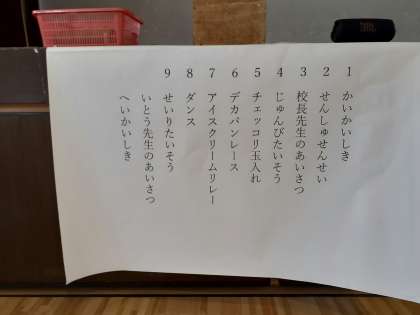 1 かいかいしき
2 せんしゅせんせい
3 校長先生のあいさつ
4 じゅんびたいそう
5 チェッコリ玉入れ
6 デカパンレース
7 アイスクリームリレー
8 ダンス
9 せいりたいそう
いとう先生のあいさつ
へいかいしき
JBL